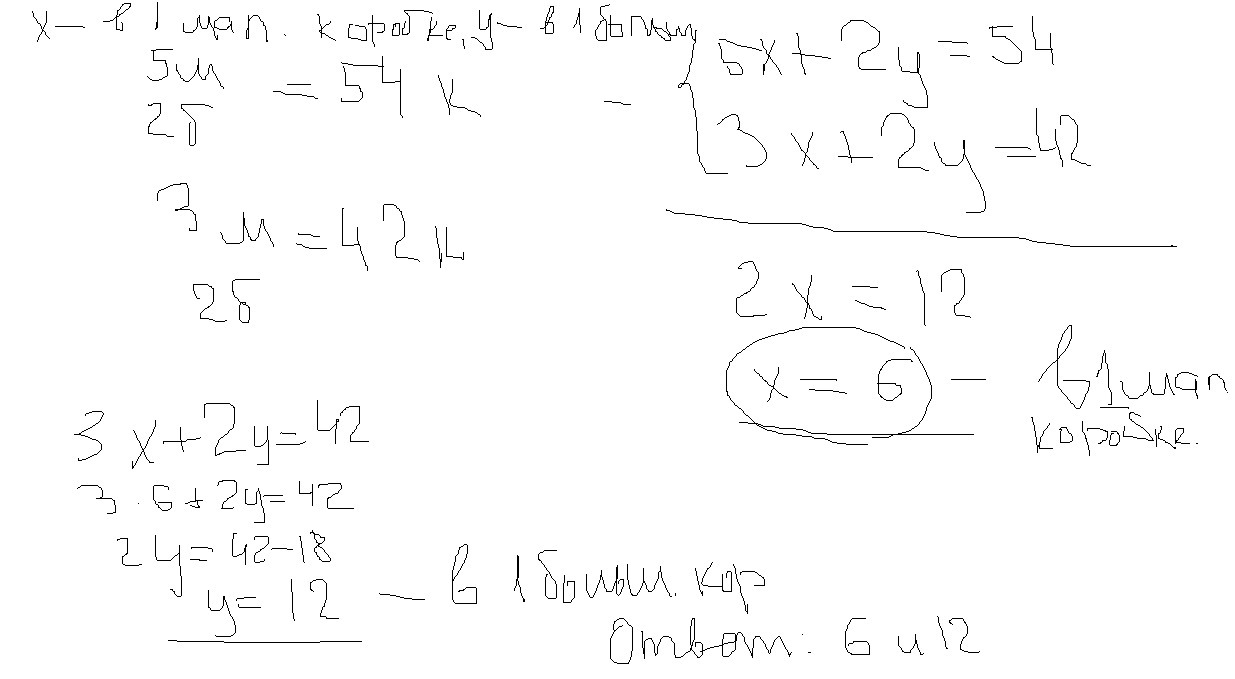 x — в 1 мал. коробке, y — в 1 больш
5м
2б
= 54 к
3м = 42 к
2б
— { 5x + 2y = 54
3x + 2y = 42
2x = 12
x = 6 — в 1 мал
коробке.
3x + 2y = 42
3 · 6 + 2y = 42
2y = 42 – 18
y = 12 — в 1 больш. кор
Ответ: 6 и 12